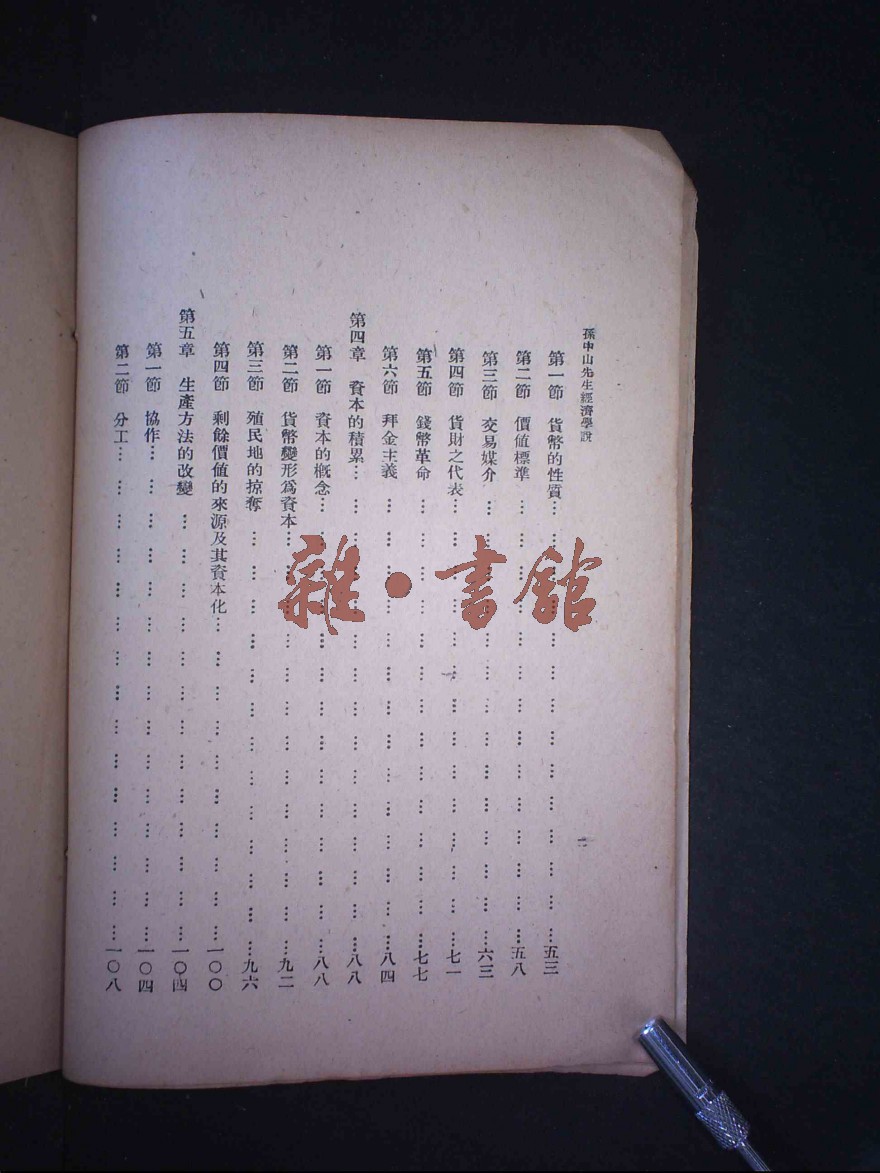 孫中山先生經濟學說
第一節　貨幣的性質……五三
第二節　價值標準……五八
第三節　交易媒介……六三
第四節　貨財之代表……七一
第五節　錢幣革命……七七
第六節　拜金主義……八四
第四章　資本的積累……八八
第一節　資本的概念……八八
第二節　貨幣變形爲資本……九二
第三節　殖民地的掠奪……九六
第四節　剩餘價值的來源及其資本化……一〇〇
第五章　生產方法的改變……一〇四
第一節　協作……一〇四
第二節　分工……一〇八
雜·書館